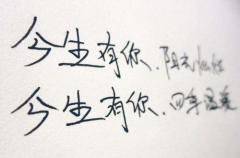 今生有你、阳光
今生有你、四季温柔